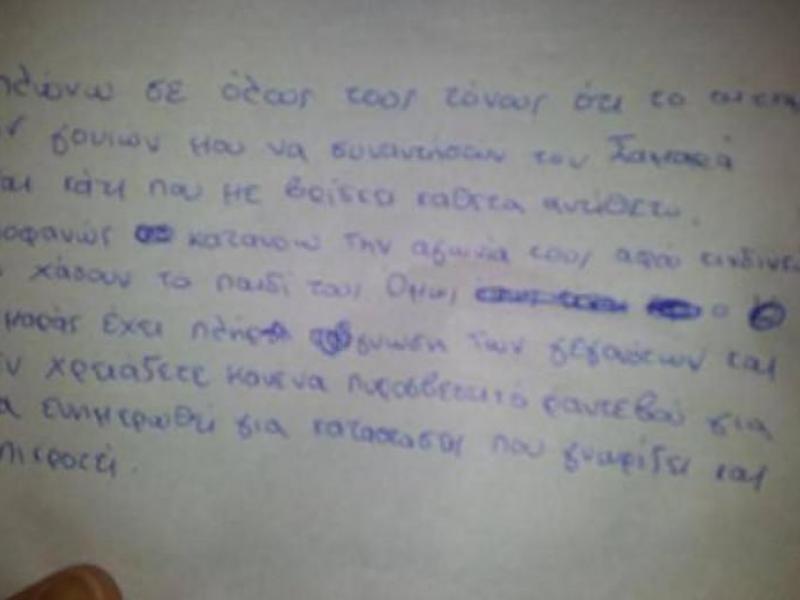 ηλώνω σε όλους τους τόνους ότι το αίτημ
ν γονιών μου να συναντήσουν τον Σαμαρά
αι κάτι που με βρίσκει καθετα αντίθετο.
οφανώς κατανοω την αγωνία τους αφού κινδυνευ
χάσουν το παιδί τους Όμως ο
μαράς έχει πλήρη γνωση των γεγονότων και
ν χρειάζετε κανενα πυροσβεστικό ραντεβού για
α ενημερωθεί για καταστασεις που γνωρίζει και
πικροτεί.